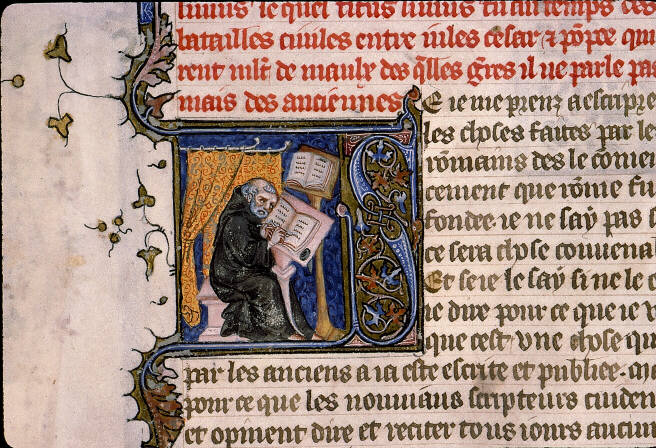 liuius le quel titus liuius fu au temps des
batailles ciuiles entre iules cesar ⁊ põpee qui
rent mlt̃ de maulx des q̃lles gr̃es il ne parle pas
mais des anciennes
E ie me prenz a escripre
les choses faites par le
rõmains des le comen
cement que rõme fu
fondee ie ne say pas s
ce sera chose conuenal
Et se ie le say si ne le o
ie dire pour ce que ie v
que cest vne chose qui
par les anciens a ia este escrite et publiee.
pour ce que les nouuiaus scripteurs cuiden
et opinent dire et reciter tous iours aucun